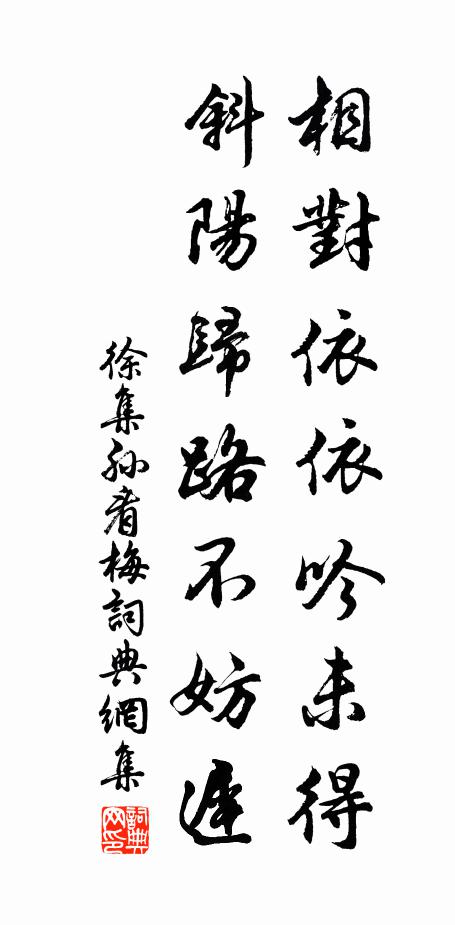 相對依依吟未得
斜陽歸路不妨遲
徐集孫看梅詞典網集
詞典
网印